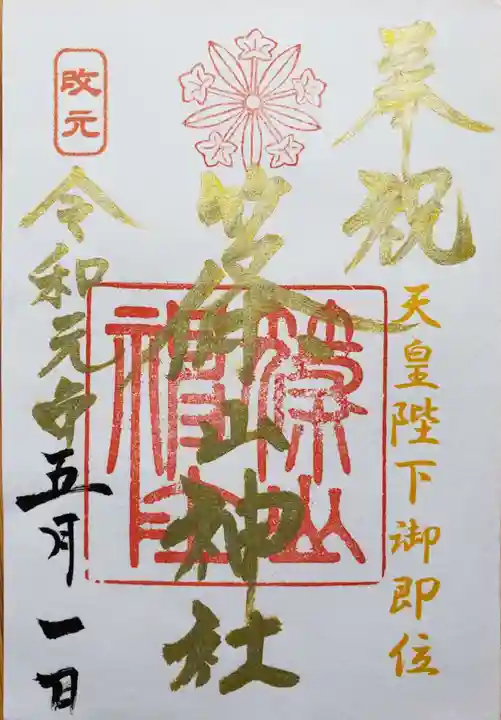 奉祝
天皇陛下御即位
篠山神社
篠山神社
改元
令和元年五月一日